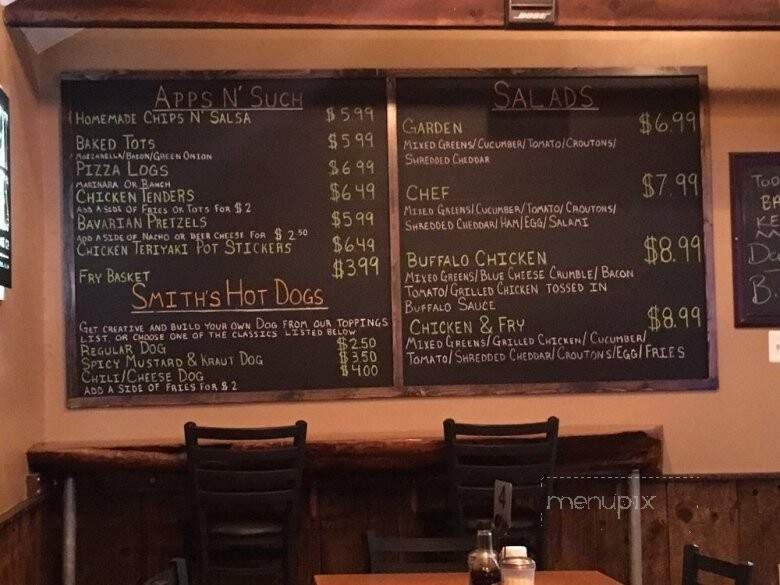 BOSE
APPS N' SUCH
HOMEMADE CHIPS N' SALSA $5.99
BAKED TOTS $5.99
MOZZARELLA/BACON/GREEN ONION
PIZZA LOGS $6.99
MARINARA OR RANCH
CHICKEN TENDERS $6.49
ADD A SIDE OF FRIES OR TOTS FOR $2
BAVARIAN PRETZELS $5.99
ADD A SIDE OF NACHO OR BEER CHEESE FOR $2.50
CHICKEN TERIYAKI POT STICKERS $6.49
FRY BASKET $3.99
SMITH'S HOT DOGS
GET CREATIVE AND BUILD YOUR OWN DOG FROM OUR TOPPINGS
LIST, OR CHOOSE ONE OF THE CLASSICS LISTED BELOW
REGULAR DOG $2.50
SPICY MUSTARD & KRAUT DOG $3.50
CHILI/CHEESE DOG $4.00
ADD A SIDE OF FRIES FOR $2
SALADS
GARDEN $6.99
MIXED GREENS/CUCUMBER/TOMATO/CROUTONS/
SHREDDED CHEDDAR
CHEF $7.99
MIXED GREENS/CUCUMBER/TOMATO/CROUTONS/
SHREDDED CHEDDAR/HAM/EGG/SALAMI
BUFFALO CHICKEN $8.99
MIXED GREENS/BLUE CHEESE CRUMBLE/BACON
TOMATO/GRILLED CHICKEN TOSSED IN
BUFFALO SAUCE
CHICKEN & FRY $8.99
MIXED GREENS/GRILLED CHICKEN/CUCUMBER/
TOMATO/SHREDDED CHEDDAR/CROUTONS/EGG/FRIES
4
menupix